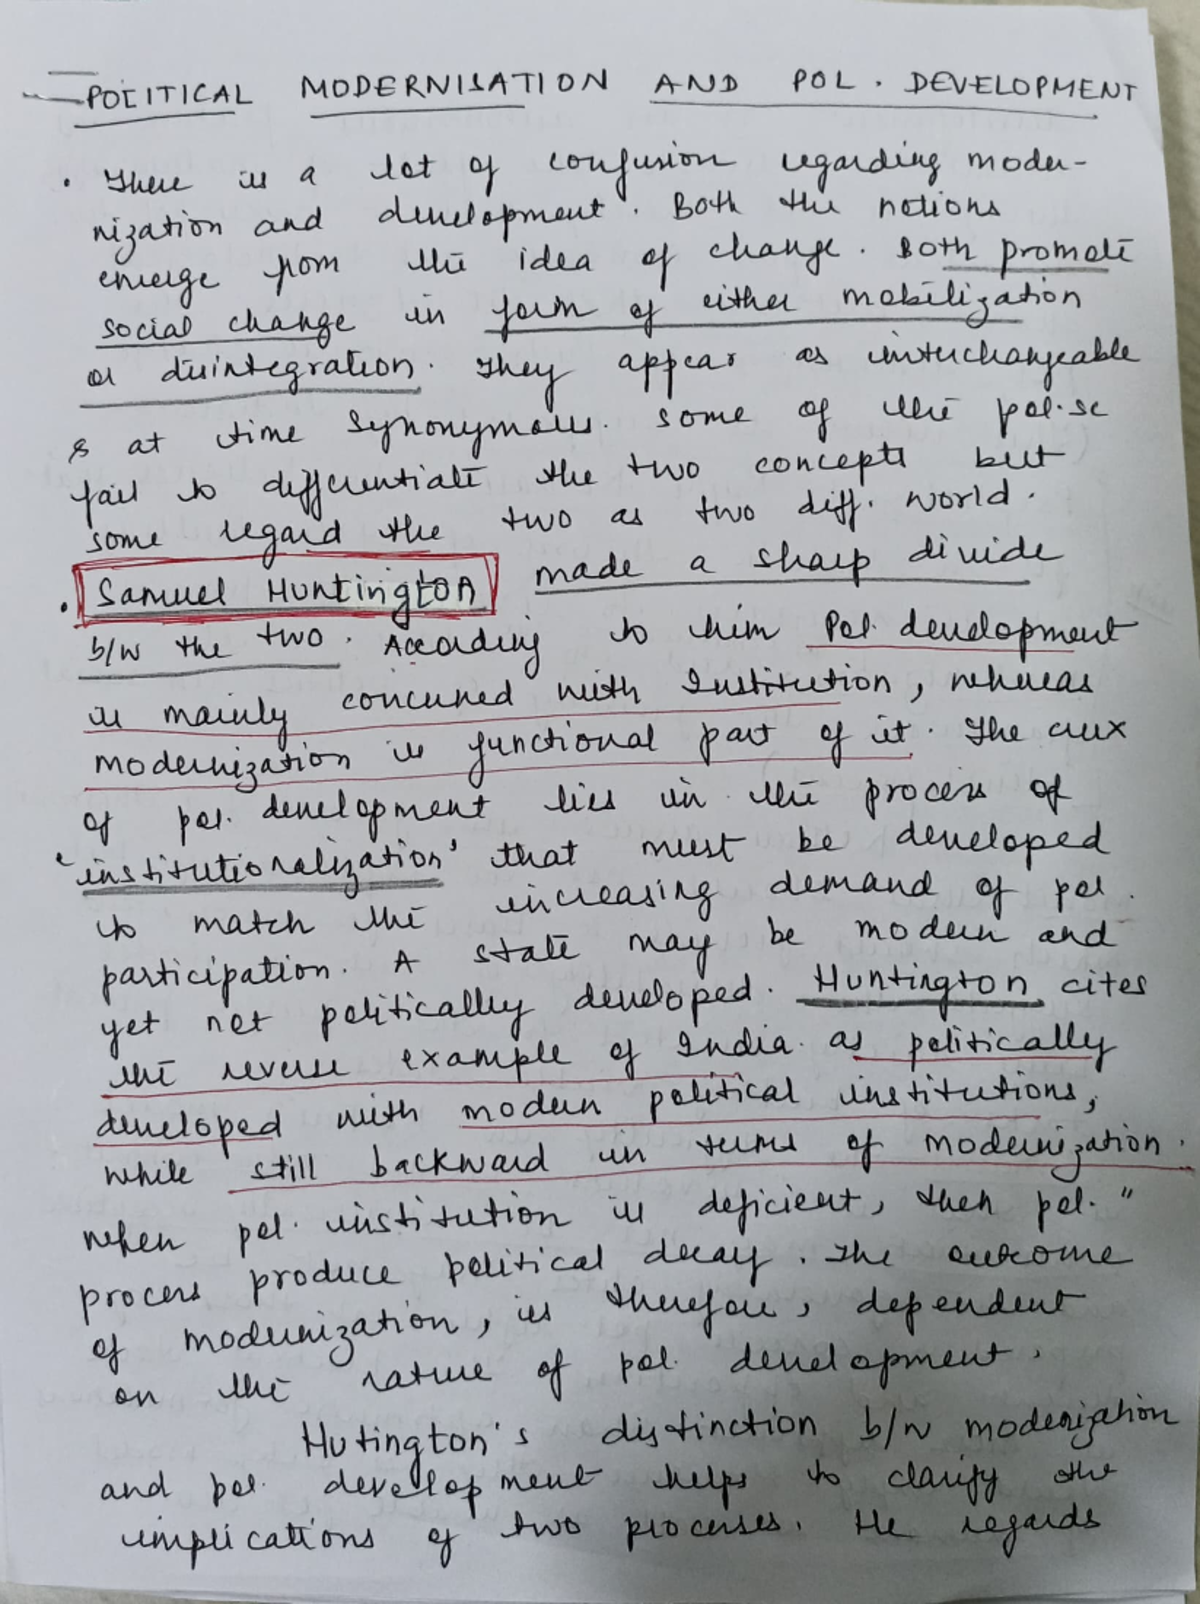 POLITICAL MODERNISATION AND POL. DEVELOPMENT
• There is a lot of confusion regarding moder-
nization and development. Both the notions
emerge from the idea of change. Both promote
social change in form of either mobilization
or disintegration. They appear as interchangeable
& at time synonymous. some of the pol.sc
fail to differentiate the two concepts but
some regard the two as two diff. world.
• Samuel Huntington made a sharp divide
b/w the two. According to him Pol. development
is mainly concerned with Institution, whereas
modernization is functional part of it. The crux
of pol. development lies in the process of
'institutionalization' that must be developed
to match the increasing demand of pol.
participation. A state may be modern and
yet not politically developed. Huntington cites
the reverse example of India as politically
developed with modern political institutions,
while still backward in terms of modernization.
when pol. institution is deficient, then pol. "
process produce political decay. The outcome
of modernization, is therefore, dependent
on the nature of pol. development.
Hutington's distinction b/w modernization
and pol. development helps to clarify the
implications of two processes. He regards